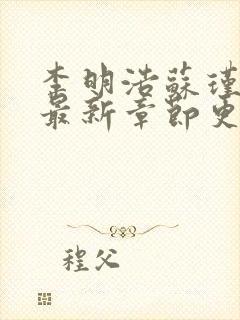 李明浩蘇瑾
最新章節更
程父